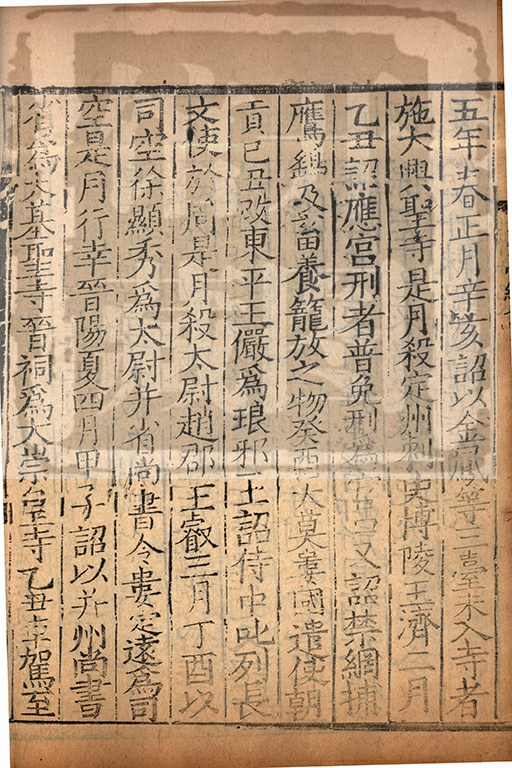 五年春正月辛亥詔以金鳳等三臺未入寺者
施大興聖寺是月殺定州刺史博陵王濟二月
乙丑詔應宮刑者普免刑為官口又詔禁網捕
鷹鷂及畜養籠放之物癸酉大莫婁國遣使朝
貢己丑改東平王儼為琅邪王詔侍中叱列長
文使於周是月殺太尉趙郡王叡三月丁酉以
司空徐顯秀為太尉并省尚書令婁定遠為司
空是月行幸晉陽夏四月甲子詔以并州尚書
省為大基聖寺晉祠為大崇皇寺乙丑車駕至